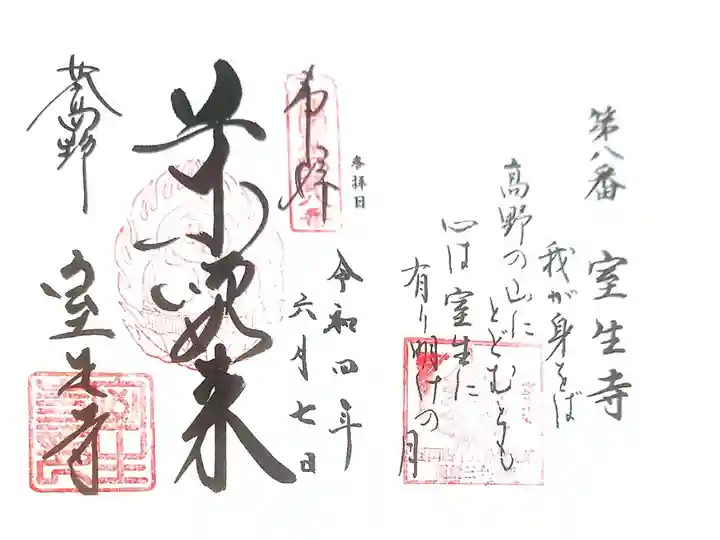 第八番 室生寺
我が身をば
高野の山に
とどむとも
心は室生に
有り明けの月
参拝日
奉拝
令和四年
六月七日
来
室生寺